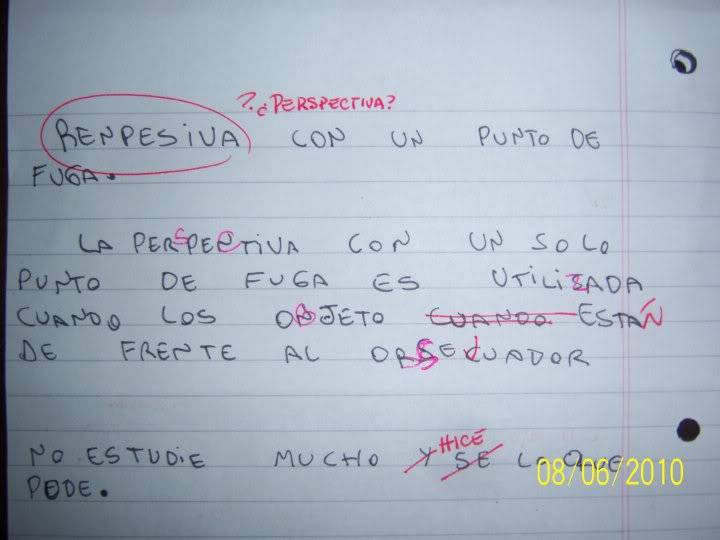 ?¿PERSPECTIVA?
RENPESIVA CON UN PUNTO DE
FUGA.
LA PERSPECTIVA CON UN SOLO
PUNTO DE FUGA ES UTILIZADA
CUANDO LOS OBJETO CUANDO ESTÁN
DE FRENTE AL OBSERVUADOR
HICE
NO ESTUDIE MUCHO Y SE LO QUE
PODE.
08/06/2010